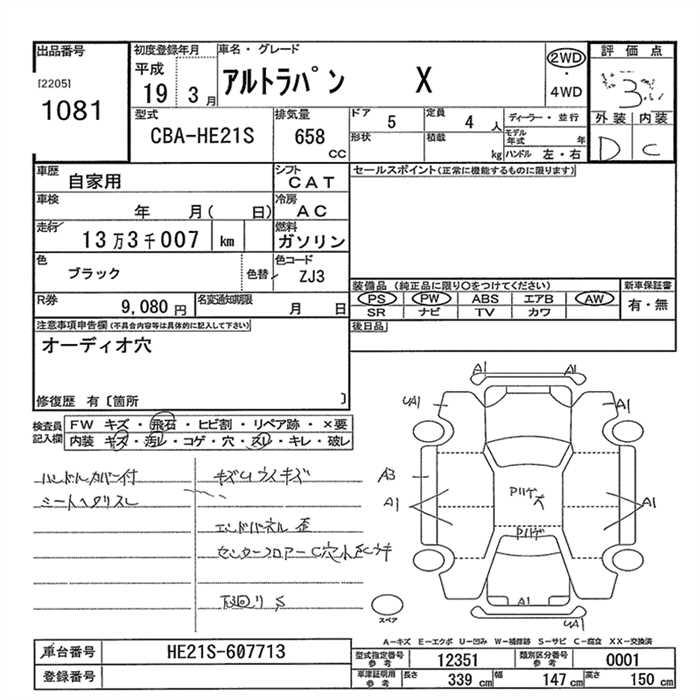 出品番号
[2205]
1081
初度登録年月
平成
19 3月
車名・グレード
アルトラパン X
2WD
・
4WD
評価点
3
外装 内装
D C
型式
CBA-HE21S
排気量
658
CC
ドア
5
定員
4 人
形状
積載
kg
ディーラー・並行
モデル年式 年
ハンドル 左・右
車歴
自家用
シフト
CAT
車検
年 月( 日)
冷房
AC
走行
13万3千007 km
燃料
ガソリン
色
ブラック
色替
色コード
ZJ3
R券
9,080円
名変通知期限
月 日
セールスポイント(正常に機能するものに限ります)
装備品 (純正品に限り○をつけてください)
PS PW ABS エアB AW
SR ナビ TV カワ
新車保証書
有・無
後日品
注意事項申告欄(不具合内容等は具体的に記入して下さい)
オーディオ穴
修復歴 有〔箇所 〕
検査員記入欄
FW キズ・飛石・ヒビ割・リペア跡・×要
内装・キズ・汚レ・コゲ・穴・スレ・キレ・破レ
ハンドルカバー付
シートヘタリスレ
キズUウスイキズ
エンドパネル 歪
下回り S
A1 A1
UA1 A1
A3
A1 A1
A1
UA1
スペア
A-キズ E-エクボ U-凹み W-補修跡 S-サビ C-腐食 XX-交換済
車台番号
HE21S-607713
登録番号
型式指定番号
参考
12351
類別区分番号
参考
0001
車庫証明用
参考
長さ 339 cm 幅 147 cm 高さ 150 cm